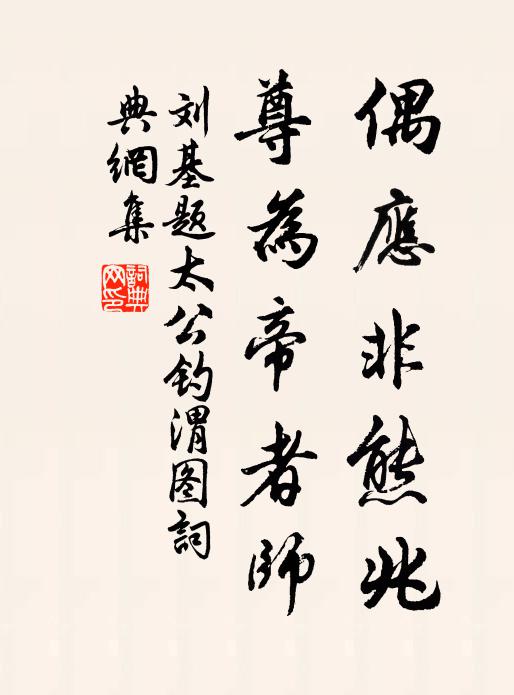 偶應非熊兆
尊為帝者師
刘基题太公钓渭图詞
典網集
詞典网印